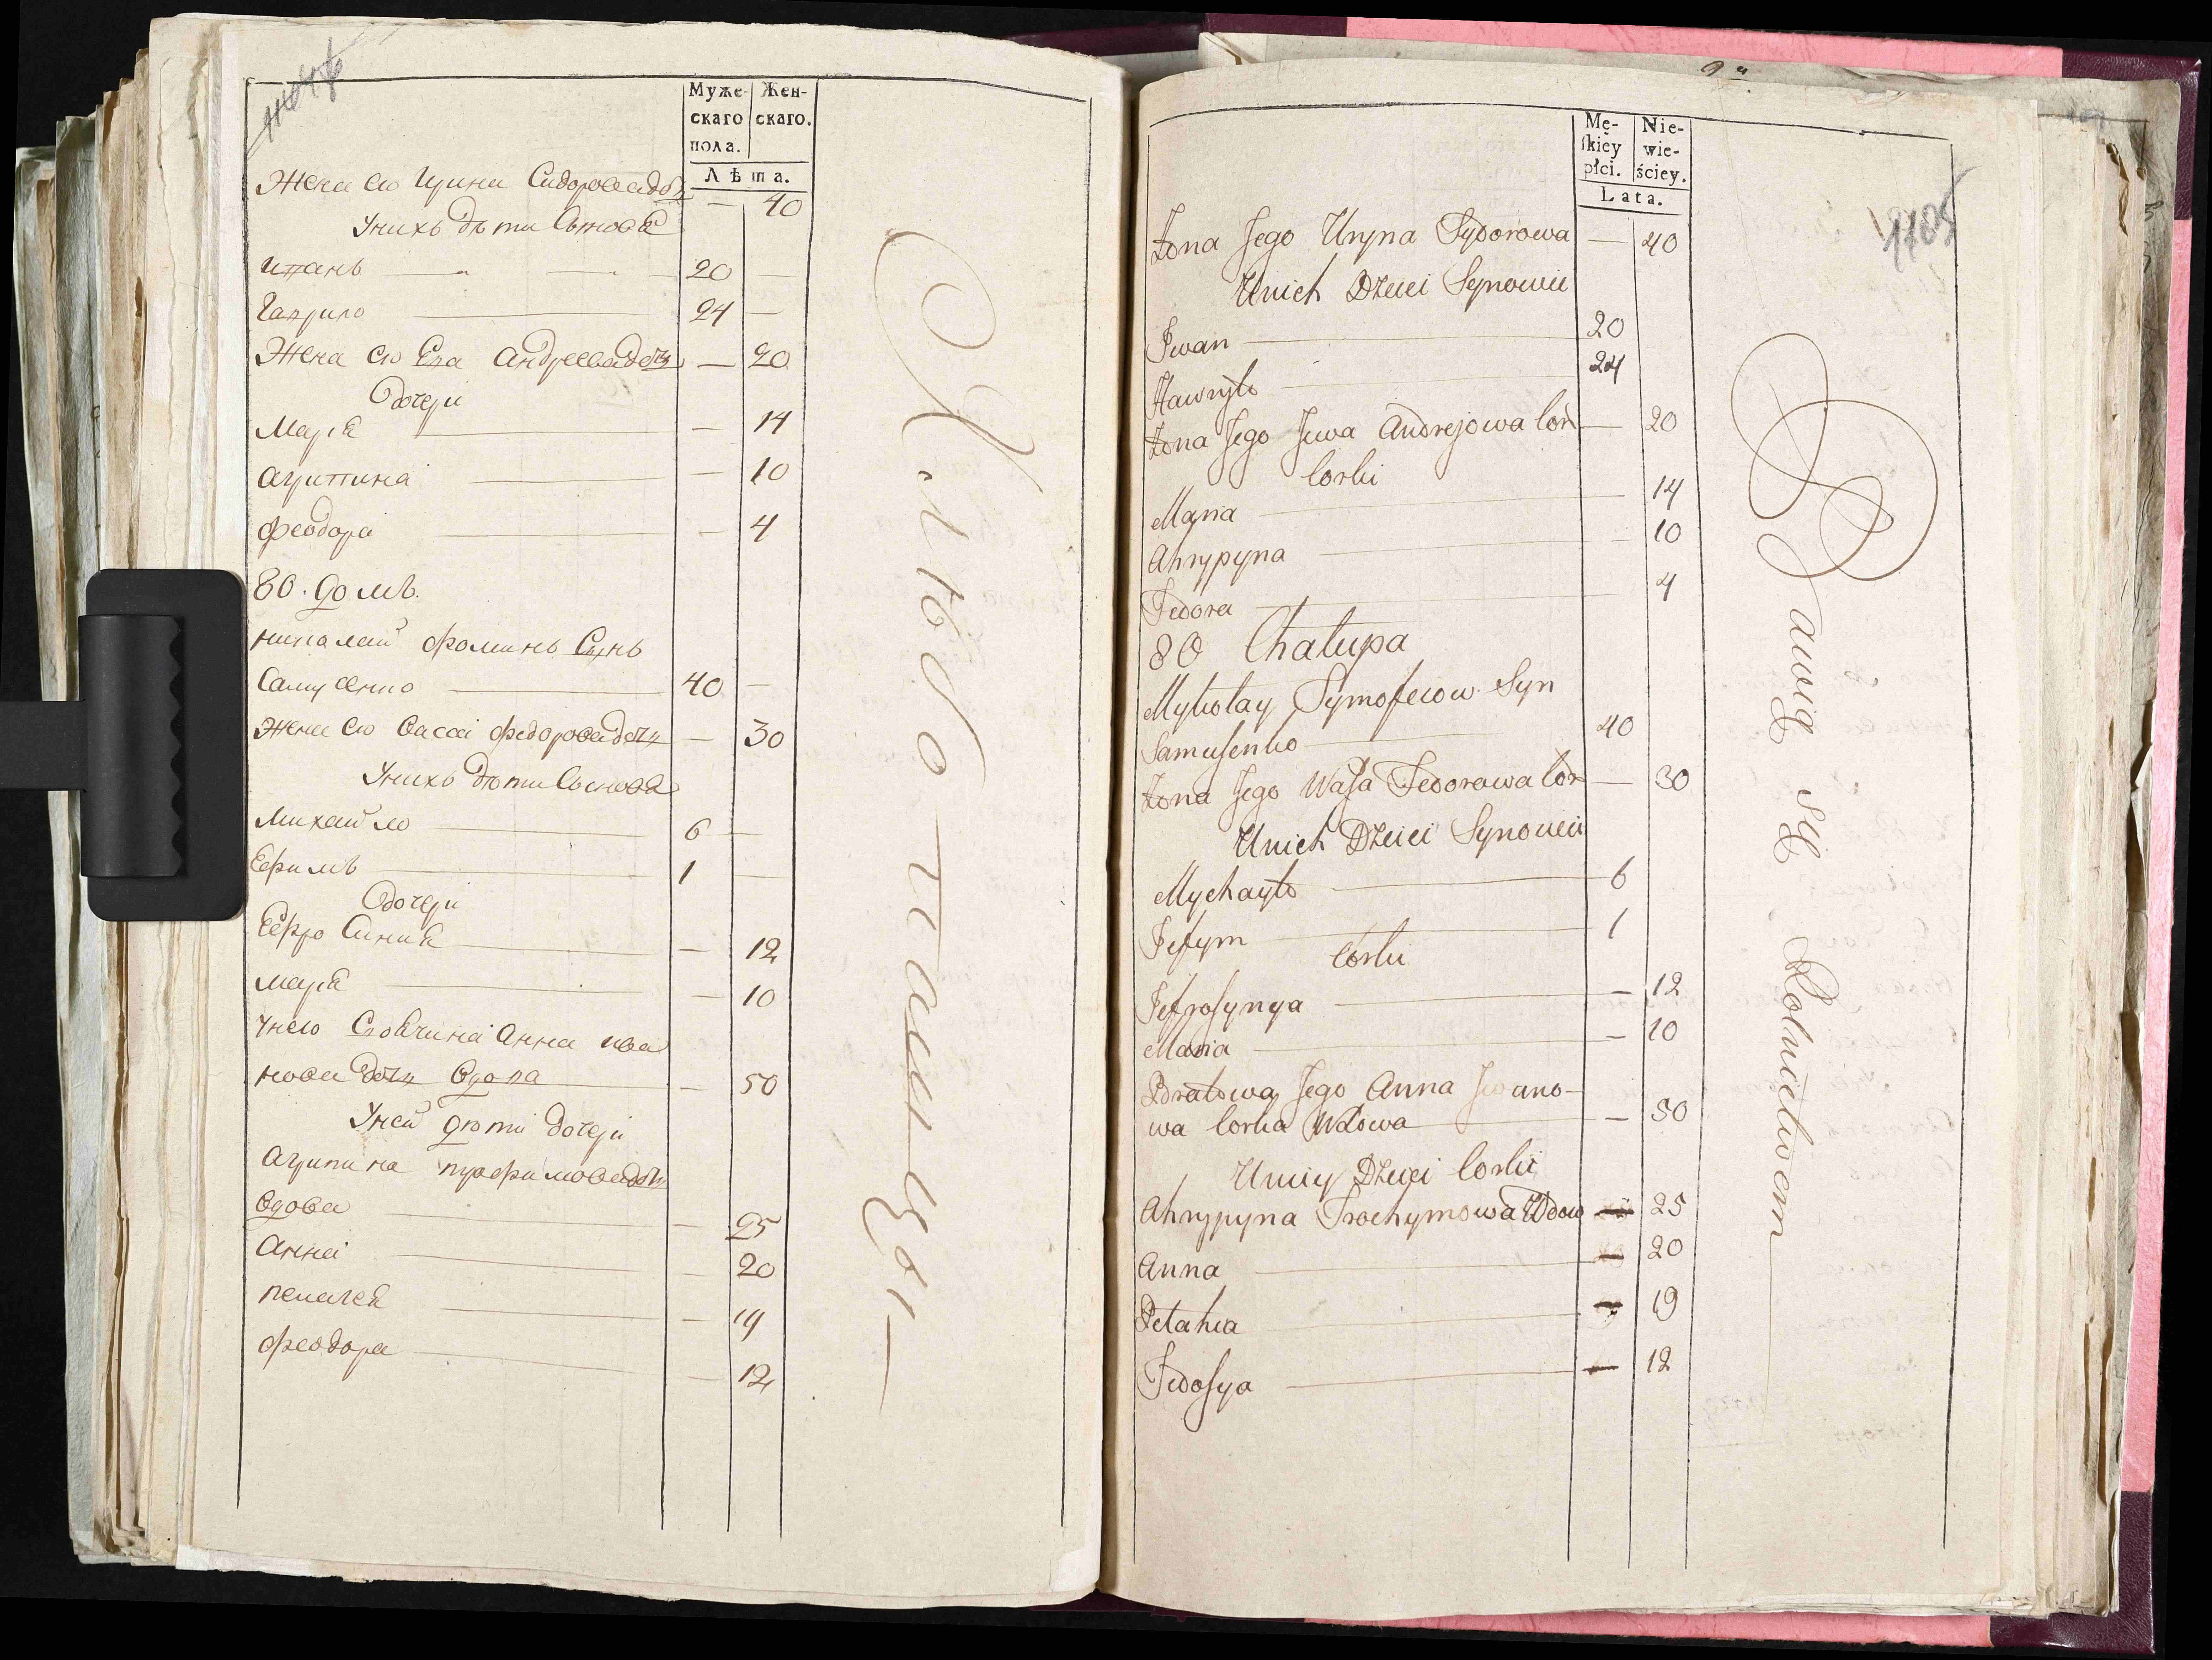 Муже-
скаго
пола.
Жен-
скаго.
Лѣта.
Жена его Ирина Сидоровадочь — 40
Унихъ дѣти Сыновѣ
Иванъ — 20 —
Гаврило — 24 —
Жена его Ева Андреевадочь — 20
Дочери
Марѣя — 14
Агрипина — 10
Феодора — 4
80. Домъ.
Николай Фоминъ Сынъ
Самусенко — 40 —
Жена его Васса Федоровадочь — 30
Унихъ дѣти Сыновѣ
Михайло — 6 —
Ефимъ — 1 —
Дочери
Ефросиния — 12
Марѣя — 10
Унего Анна Ива
новадочь Вдова — 50
Уней дѣти дочери
Агрипина
Вдова — 25
Анна — 20
Пелагея — 19
Феодора — 12
Хлѣбопашцы
Mę-
ſkiey
płci.
Nie-
wie-
ściey.
Lata.
1705
Żona Jego Uryna Sydorowa — 40
Unich Dzieci Synowie
Iwan — 20
Hawryło — 24
Żona Jego Jewa Andrejowa Cor — 20
Corki
Maria — 14
Ahrypyna — 10
Fedora — 4
80 Chałupa
Mykołay Syn
Samuſenko — 40
Żona Jego Waſa Fedorowa Cor — 30
Unich Dzieci Synowie
Mychayło — 6
Jefym — 1
Corki
Jefroſynya — 12
Maria — 10
Bratowa Jego Anna Iwano-
wa Corka Wdowa — 50
Uniey Dzieci Corki
Ahrypyna Trochymowa Wdow — 25
Anna — 20
Pelahia — 19
Fedoſya — 12
Bawią się Rolnictwem